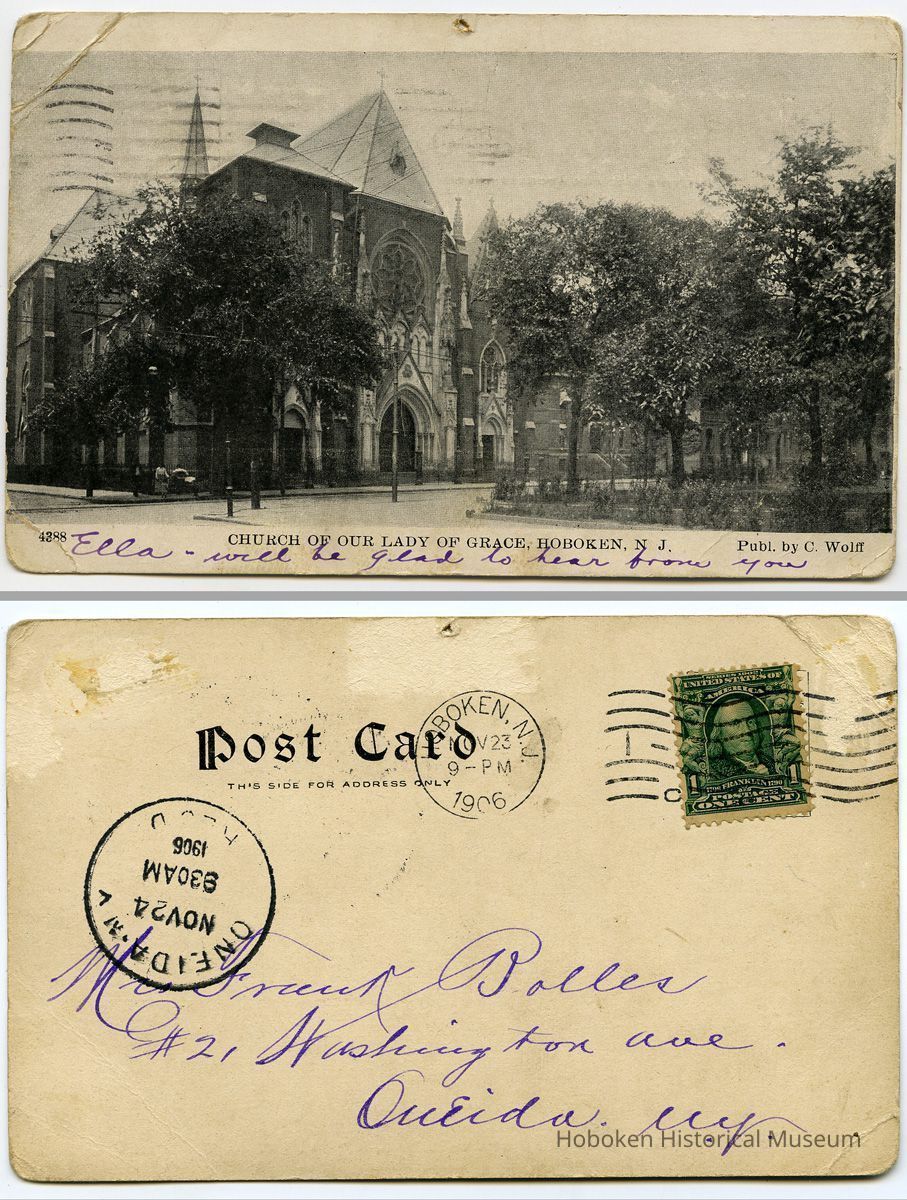 4388 CHURCH OF OUR LADY OF GRACE, HOBOKEN, N. J. Publ. by C. Wolff
Ella - will be glad to hear from you
Post Card
THIS SIDE FOR ADDRESS ONLY
HOBOKEN, N.J.
NOV 23
9-PM
1906
SERIES 1902
UNITED STATES OF
AMERICA
1706 FRANKLIN 1790
1 POSTAGE 1
ONE CENT
REC'D
1906
930AM
NOV 24
ONEIDA, N.Y.
Frank Bolles
#21 Washington ave.
Oneida. N.Y.
Hoboken Historical Museum